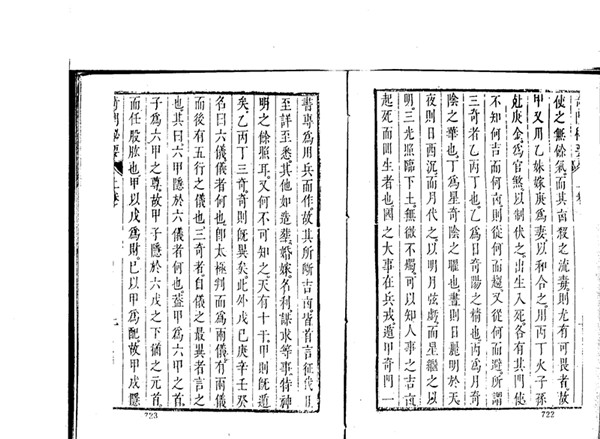 奇門秘要 上卷
使之無餘氣而其凶煞之流毒則尤有可畏者故
甲又用乙妹嫁庚爲妻以和合之用丙丁火子孫
尅庚金爲官煞以制伏之出生入死各有其門使
不知何吉而何凶則從何而趨又從何而避所謂
三奇者乙丙丁也乙爲日奇陽之精也丙爲月奇
陰之華也丁爲星奇陰之曜也晝則日麗明於天
夜則日西沉而月代之以明月弦戲而星繼之以
明三光照臨下土無微不燭可以知人事之吉凶
起死而回生者也國之大事在兵戎遁甲奇門一
722
書專爲用兵而作故其所斷吉凶皆首言征伐且
至詳至悉其他如造葬婚嫁名利謀求等事特神
明之餘照耳又何不可知之天有十干甲則旣遁
矣乙丙丁三奇則旣異矣此外戊己庚辛壬癸
名曰六儀儀者何也卽太極判而爲兩儀有兩儀
而後有五行之儀也三奇者自儀之最異者言之
也其曰六甲隱於六儀者何也蓋甲爲六甲之首
子爲六甲之尊故甲子隱於六戊之下猶之元首
而任股肱也甲以戊爲財己以甲爲配故甲戌隱
奇門秘要 上卷 九
723